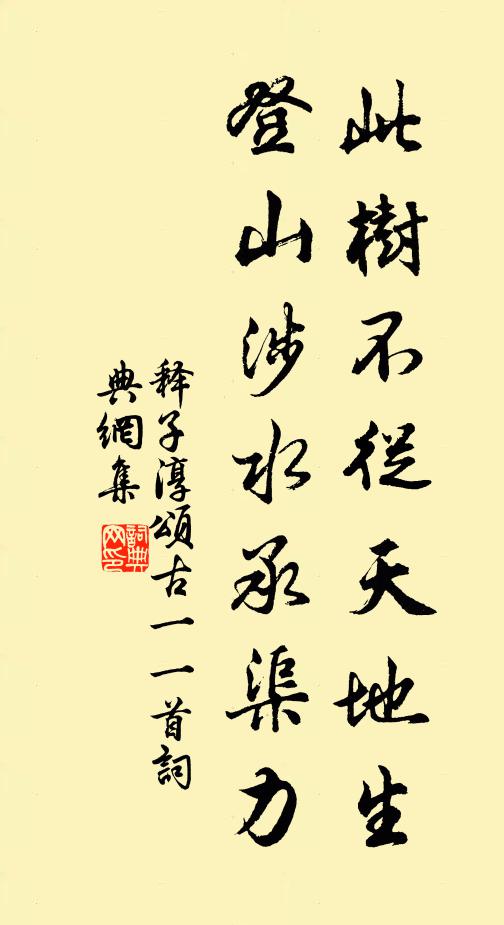 此樹不從天地生
登山涉水承渠力
释子淳頌古一一首詞
典網集
詞典
网印